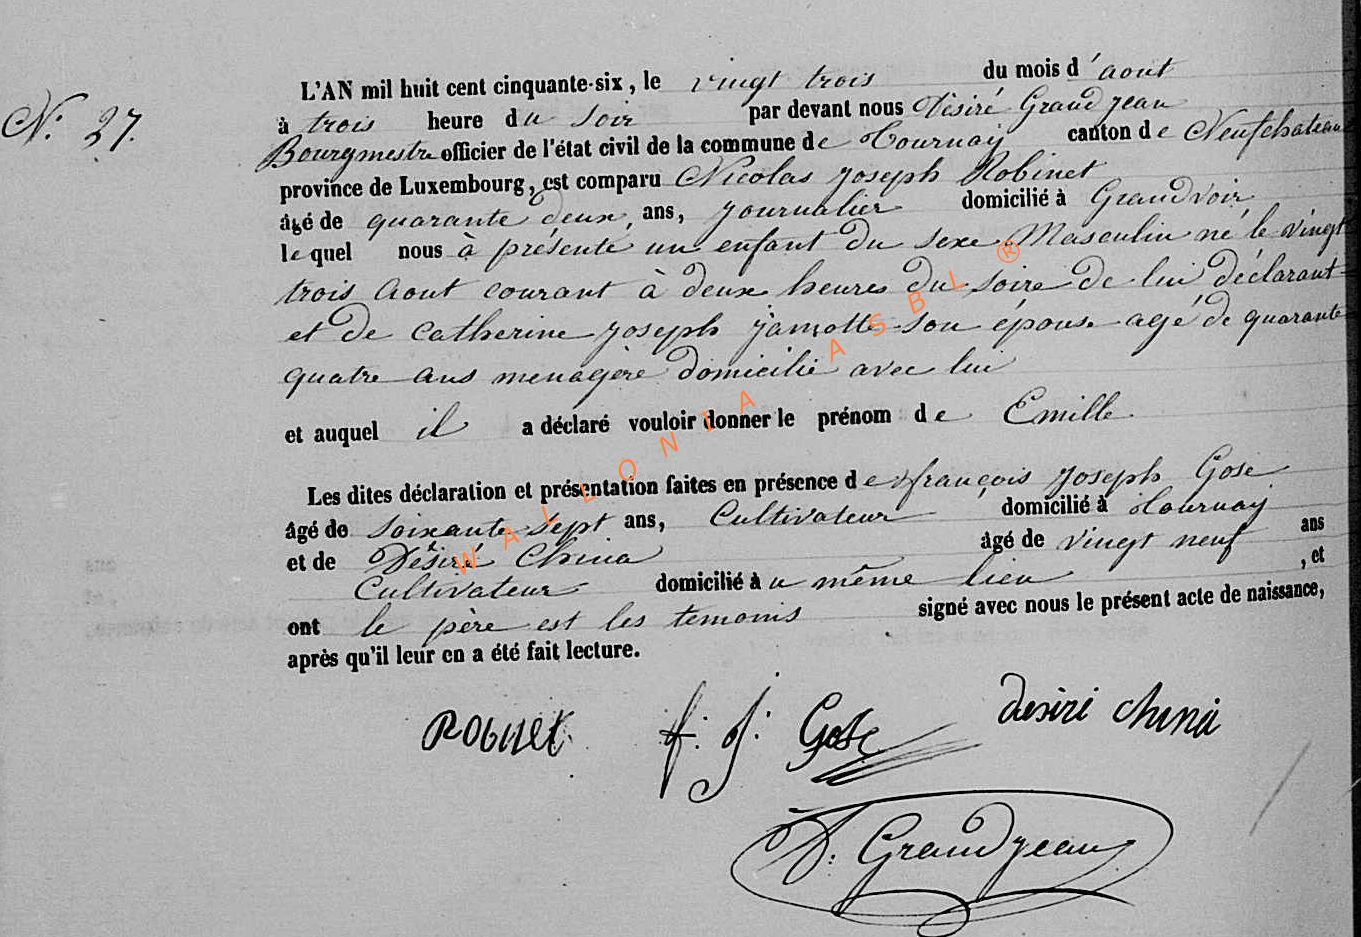 N.° 27.
L'AN mil huit cent cinquante-six, le vingt trois du mois d'aout
à trois heure du soir par devant nous Désiré Grandjean
Bourgmestre officier de l'état civil de la commune de Tournay canton de Neufchateau
province de Luxembourg, est comparu Nicolas Joseph Robinet
âgé de quarante deux ans, journalier domicilié à Grandvoir
le quel nous à présenté un enfant du sexe Masculin né le vingt
trois Aout courant à deux heures du soire de lui déclarant
et de Catherine Joseph Jamotte son épouse agé de quarante
quatre ans menagère domicilié avec lui
et auquel il a déclaré vouloir donner le prénom de Emille
Les dites déclaration et présentation faites en présence de françois Joseph Gose
âgé de soixante sept ans, Cultivateur domicilié à Tournay
et de Désiré China âgé de vingt neuf ans
Cultivateur domicilié àu même lieu , et
ont le père est les temoins signé avec nous le présent acte de naissance,
après qu'il leur en a été fait lecture.
Robinet f. J. Gose desiré china
D. Grandjean
WALLONIA ASBL ®